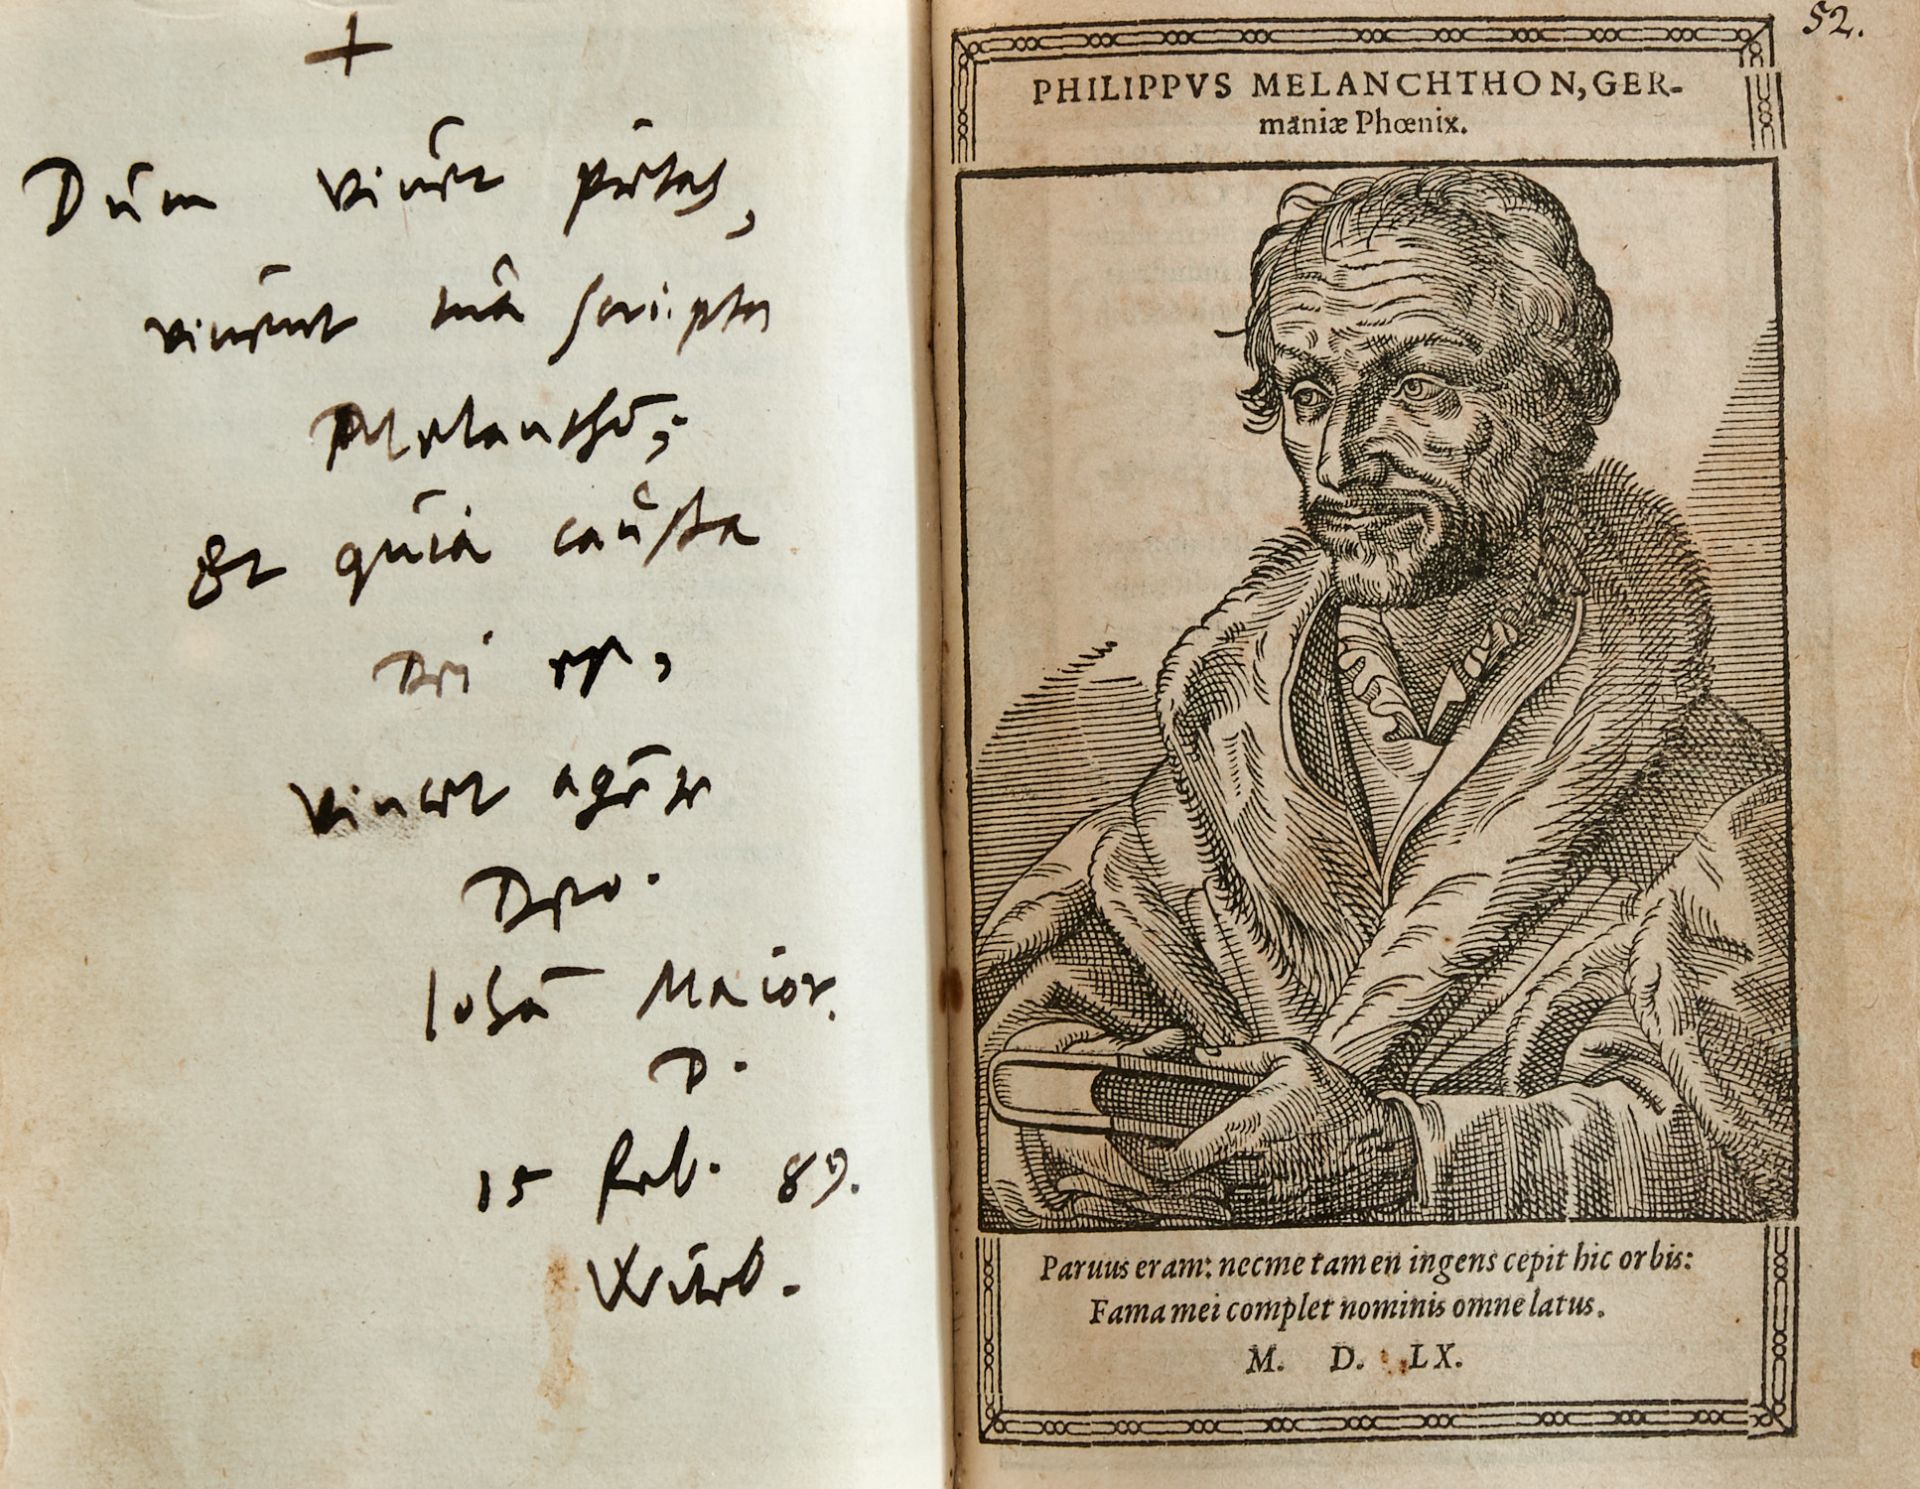 +
Dum viuet pietas,
viuent tua scripta
Melanthō;
Et quia causta
Dei est,
viuet agēte
Deo.
Iohā Maior.
D.
15 Feb. 89.
Witeb.
52.
PHILIPPVS MELANCHTHON, GER-
maniæ Phœnix.
Paruus eram: nec me tamen ingens cepit hic orbis:
Fama mei complet nominis omne latus.
M. D. LX.